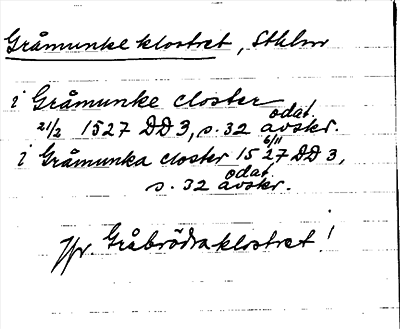 Gråmunkeklostret, Sthlm
i Gråmunke closter
21/2 1527 DD 3, s. 32 odat. avskr.
i Gråmunka closter 15 6/11 27 DD 3,
s. 32 odat. avskr.
Jfr. Gråbrödraklostret!